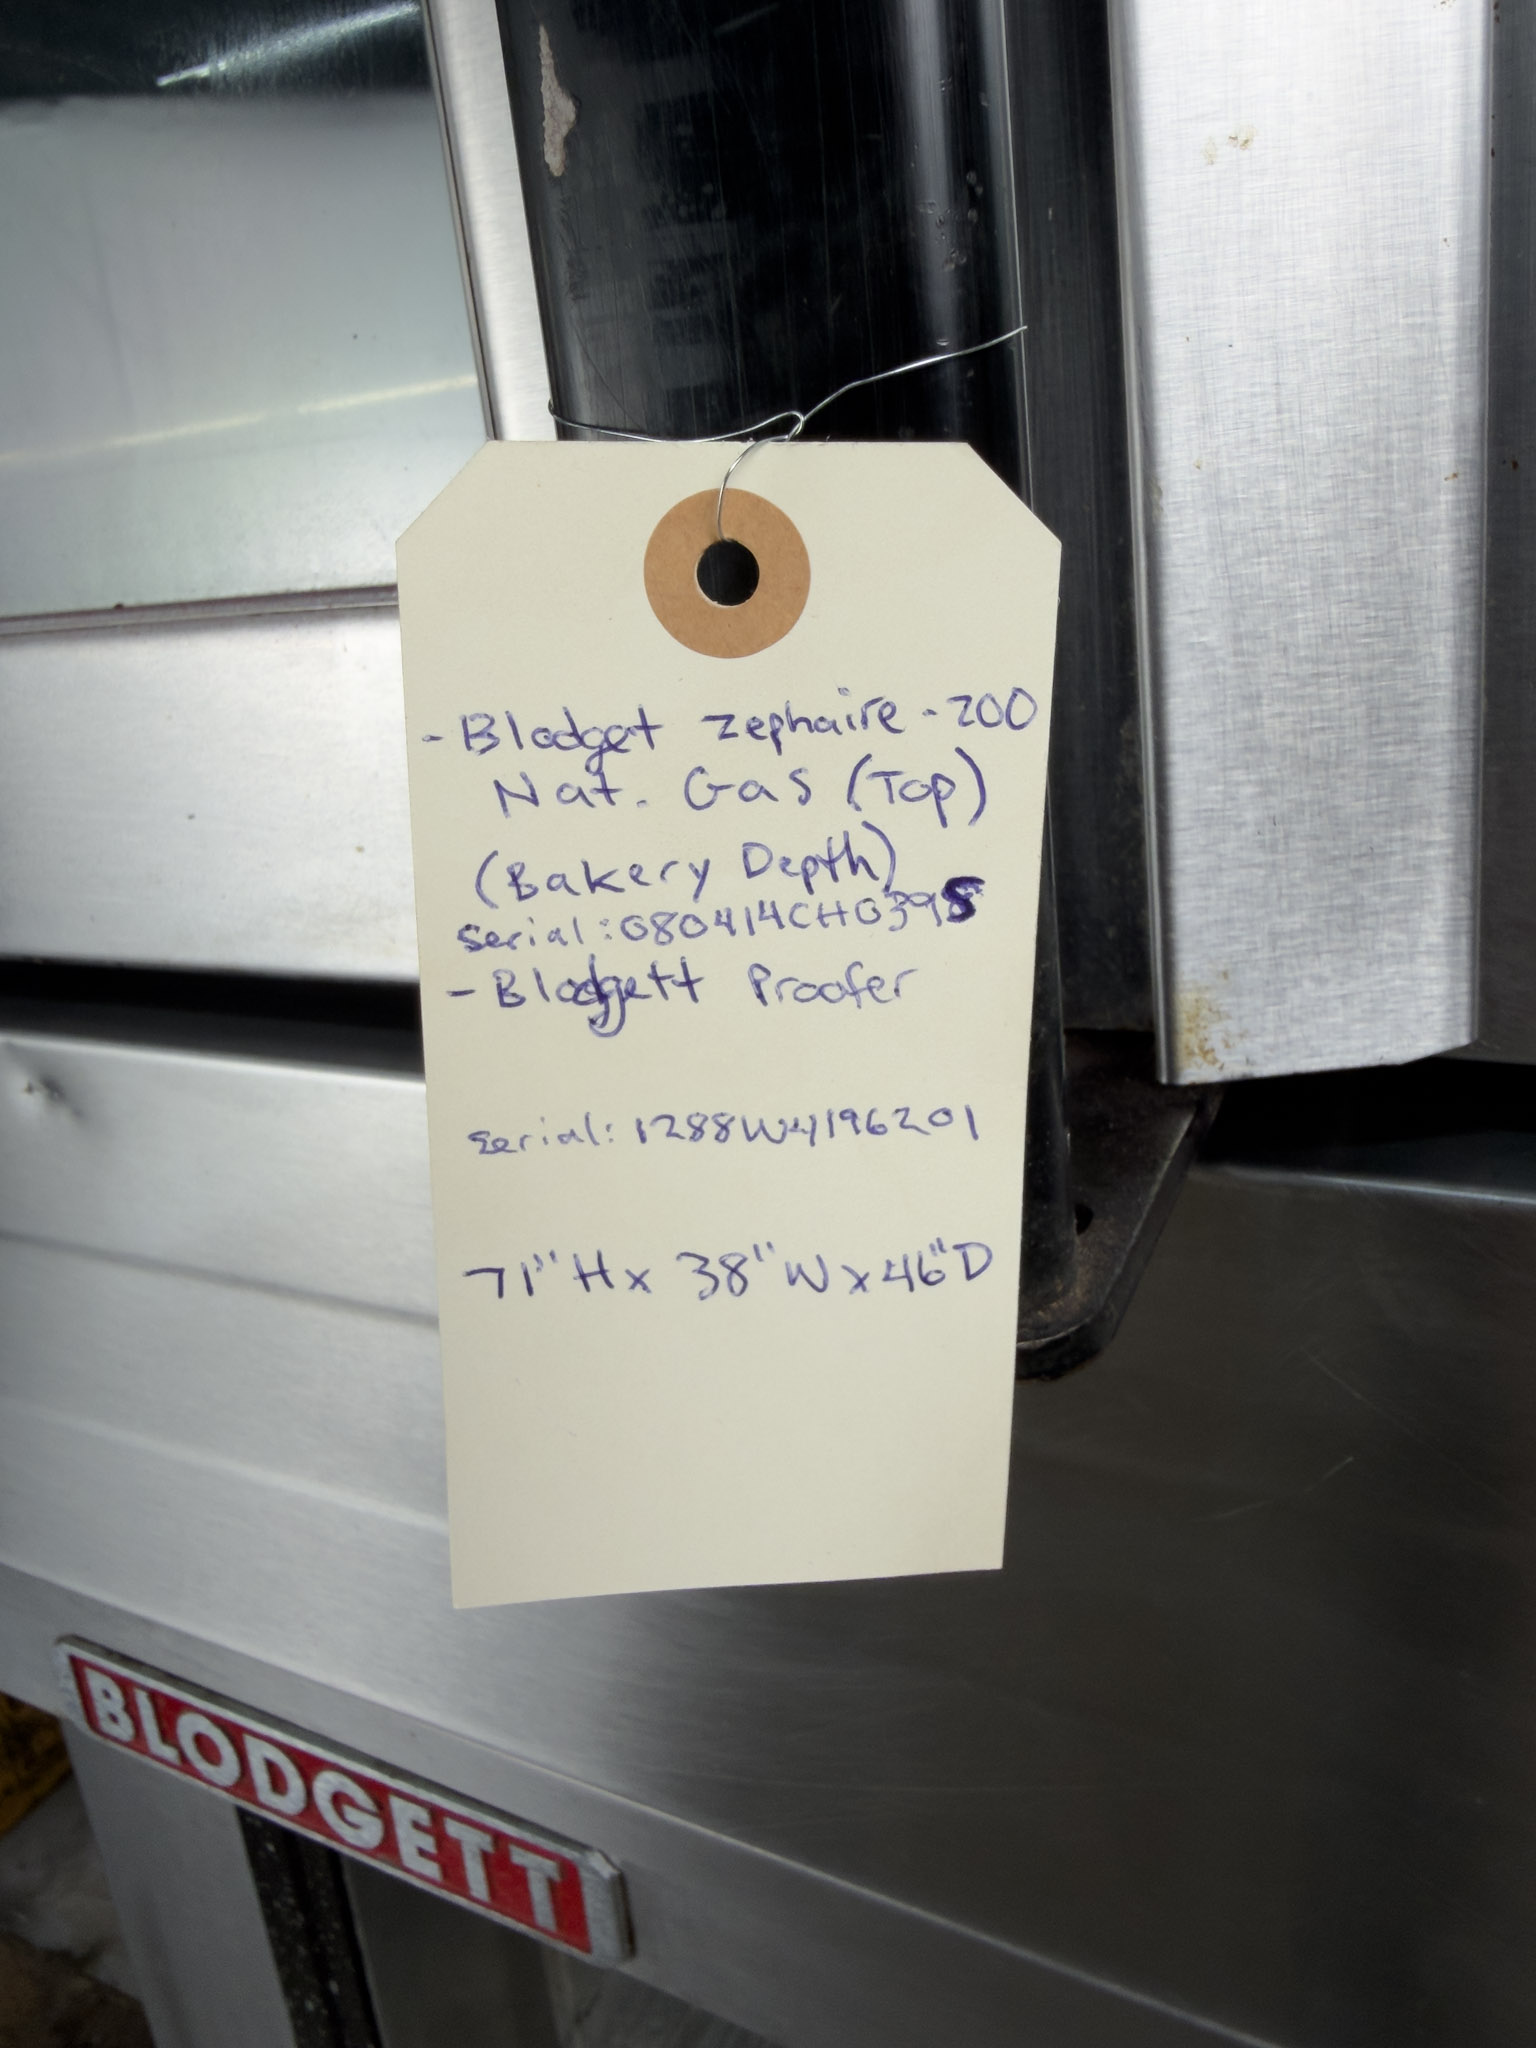 - Blodget Zephaire - 200
Nat. Gas (Top)
(Bakery Depth)
serial: 080414CH0398
- Blodgett Proofer
serial: 1288W4196201
71" H x 38" W x 46" D
BLODGETT